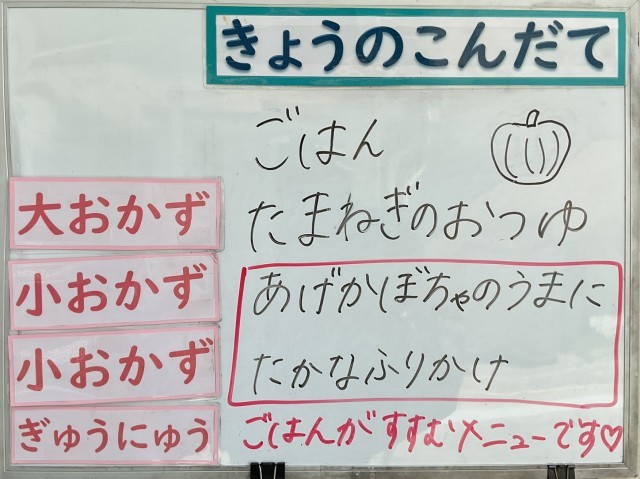 きょうのこんだて
ごはん
大おかず たまねぎのおつゆ
小おかず あげかぼちゃのうまに
小おかず たかなふりかけ
ぎゅうにゅう ごはんがすすむメニューです♡